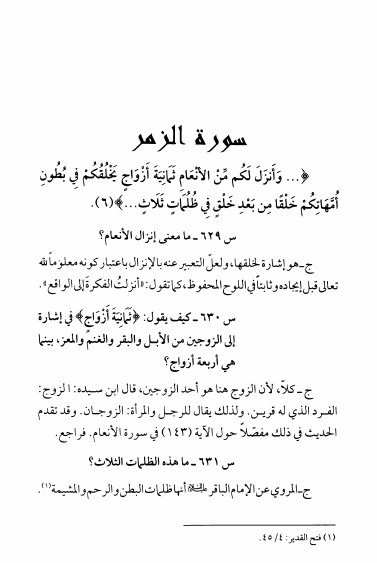 سورة الزمر
﴿... وَأَنزَلَ لَكُم مِّنَ الأَنْعَامِ ثَمَانِيَةَ أَزْوَاجٍ يَخْلُقُكُمْ فِي بُطُونِ
أُمَّهَاتِكُمْ خَلْقًا مِن بَعْدِ خَلْقٍ فِي ظُلُمَاتٍ ثَلَاثٍ...﴾(٦).
س ٦٢٩ ـ ما معنى إنزال الأنعام؟
ج ـ هو إشارة لخلقها، ولعلّ التعبير عنه بالإنزال باعتبار كونه معلوماً لله
تعالى قبل إيجاده وثابتاً في اللوح المحفوظ، كما تقول: «أنزلتُ الفكرة إلى الواقع».
س ٦٣٠ ـ كيف يقول: ﴿ثَمَانِيَةَ أَزْوَاجٍ﴾ في إشارة
إلى الزوجين من الأبل والبقر والغنم والمعز، بينما
هي أربعة أزواج؟
ج ـ كلاّ، لأن الزوج هنا هو أحد الزوجين، قال ابن سيده: الزوج:
الفرد الذي له قرين. ولذلك يقال للرجل والمرأة: الزوجان. وقد تقدم
الحديث في ذلك مفصّلاً حول الآية (١٤٣) في سورة الأنعام. فراجع.
س ٦٣١ ـ ما هذه الظلمات الثلاث؟
ج ـ المروي عن الإمام الباقر عليه السلام أنها ظلمات البطن والرحم والمشيمة(١).
(١) فتح القدير: ٤/ ٤٥٠.